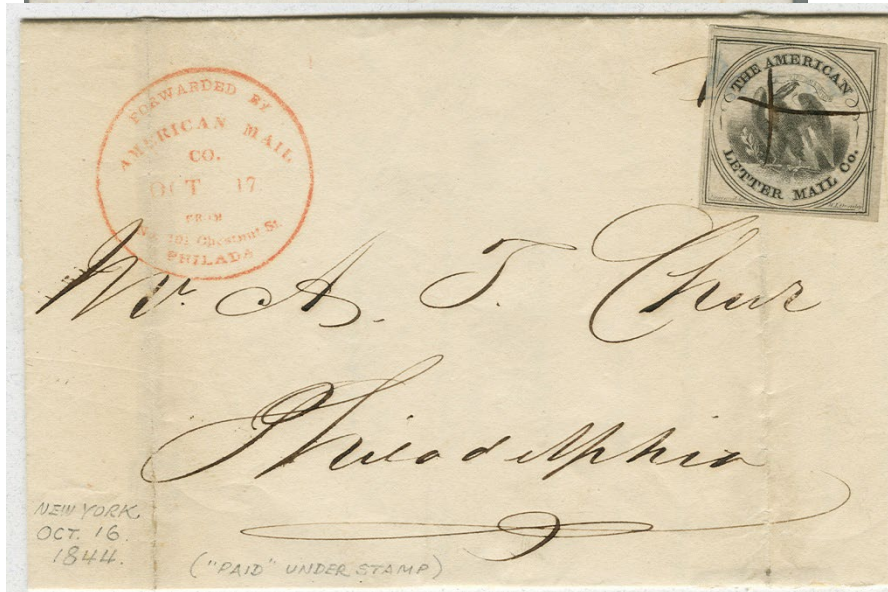 FORWARDED BY
AMERICAN MAIL
CO.
OCT 17
FROM
No. 101 Chestnut St
PHILADA
THE AMERICAN
LETTER MAIL Co.
Mr. A. T. Chur
Philadelphia
NEW YORK.
OCT. 16
1844.
("PAID" UNDER STAMP)